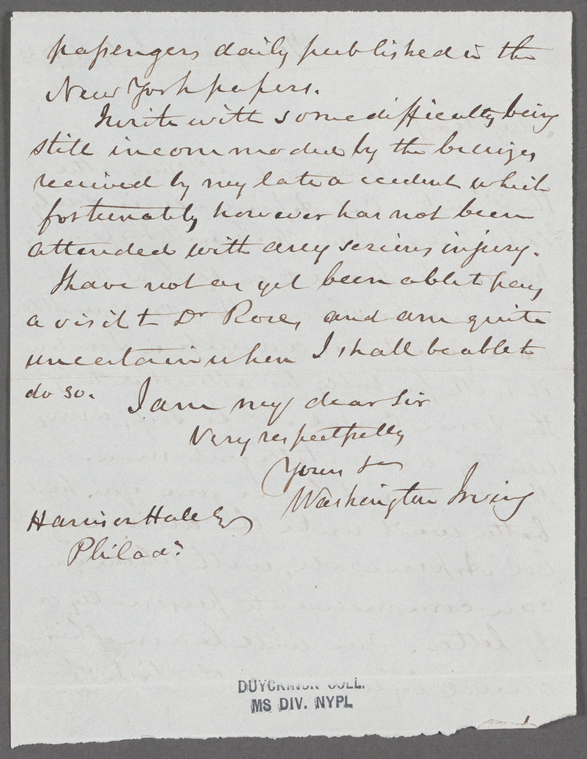 passengers daily published in the
New York papers.
I write with some difficulty being
still incommoded by the bruizes
received by my late accident which
fortunately however has not been
attended with any serious injury.
I have not as yet been able to pay
a visit to Dr Rose, and am quite
uncertain when I shall be able to
do so.
I am my dear Sir
Very respectfully
Yours &c
Washington Irving
Harrison Hall Esq
Philada.
DUYCKINCK COLL.
MS DIV. NYPL